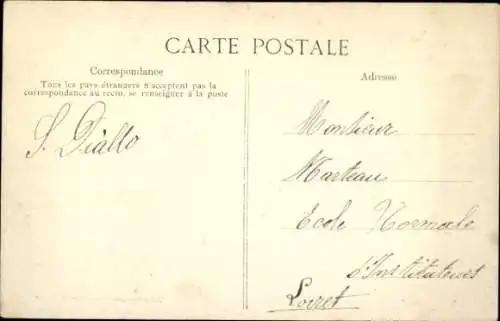 CARTE POSTALE
Correspondance
Tous les pays étrangers n'acceptent pas la
correspondance au recto, se renseigner à la poste
Adresse
S. Diallo
Monsieur
Marteau
Ecole Normale
d'Instituteurs
Loiret